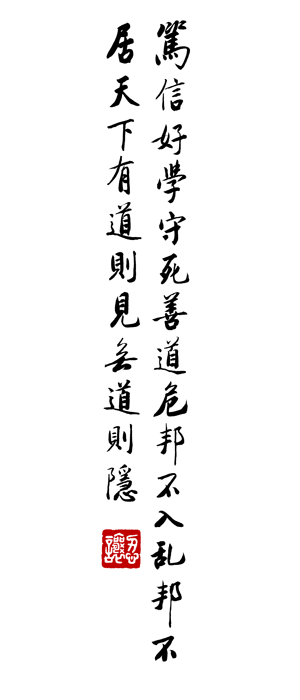 篤信好學守死善道危邦不入乱邦不
居天下有道則見無道則隱